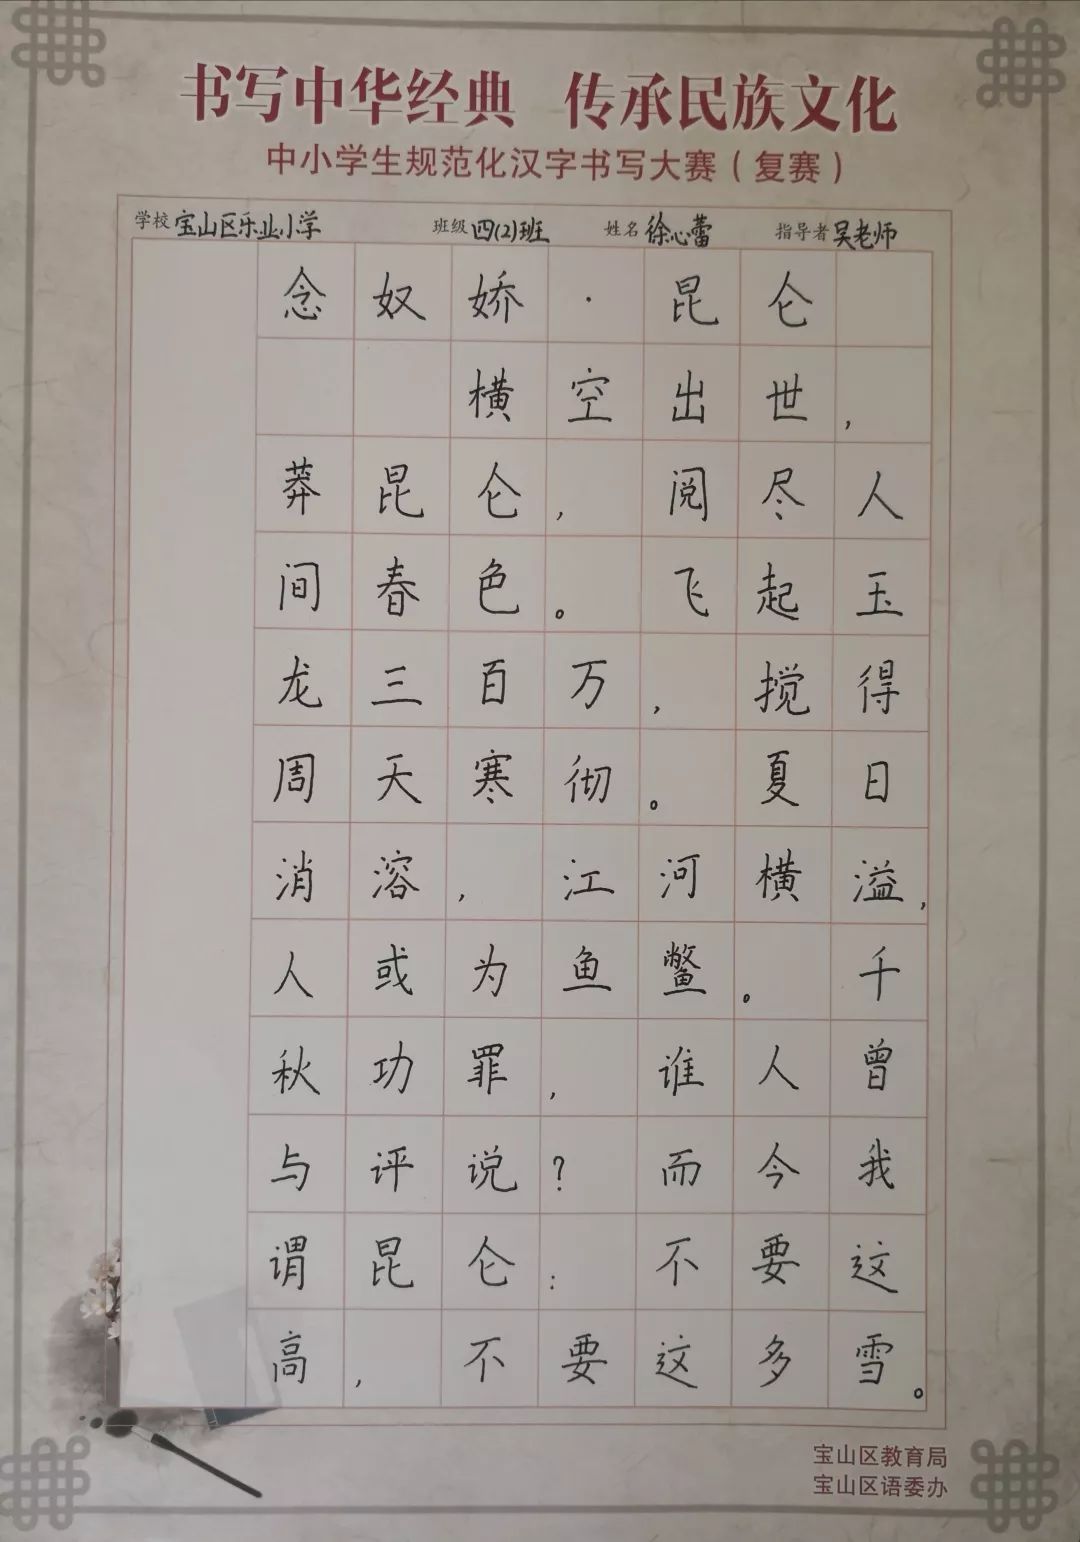 书写中华经典 传承民族文化
中小学生规范化汉字书写大赛（复赛）
学校 宝山区乐业小学 班级 四(2)班 姓名 徐心蕾 指导者 吴老师
念奴娇·昆仑
横空出世，
莽昆仑，阅尽人
间春色。飞起玉
龙三百万，搅得
周天寒彻。夏日
消溶，江河横溢，
人或为鱼鳖。千
秋功罪，谁人曾
与评说？而今我
谓昆仑：不要这
高，不要这多雪。
宝山区教育局
宝山区语委办